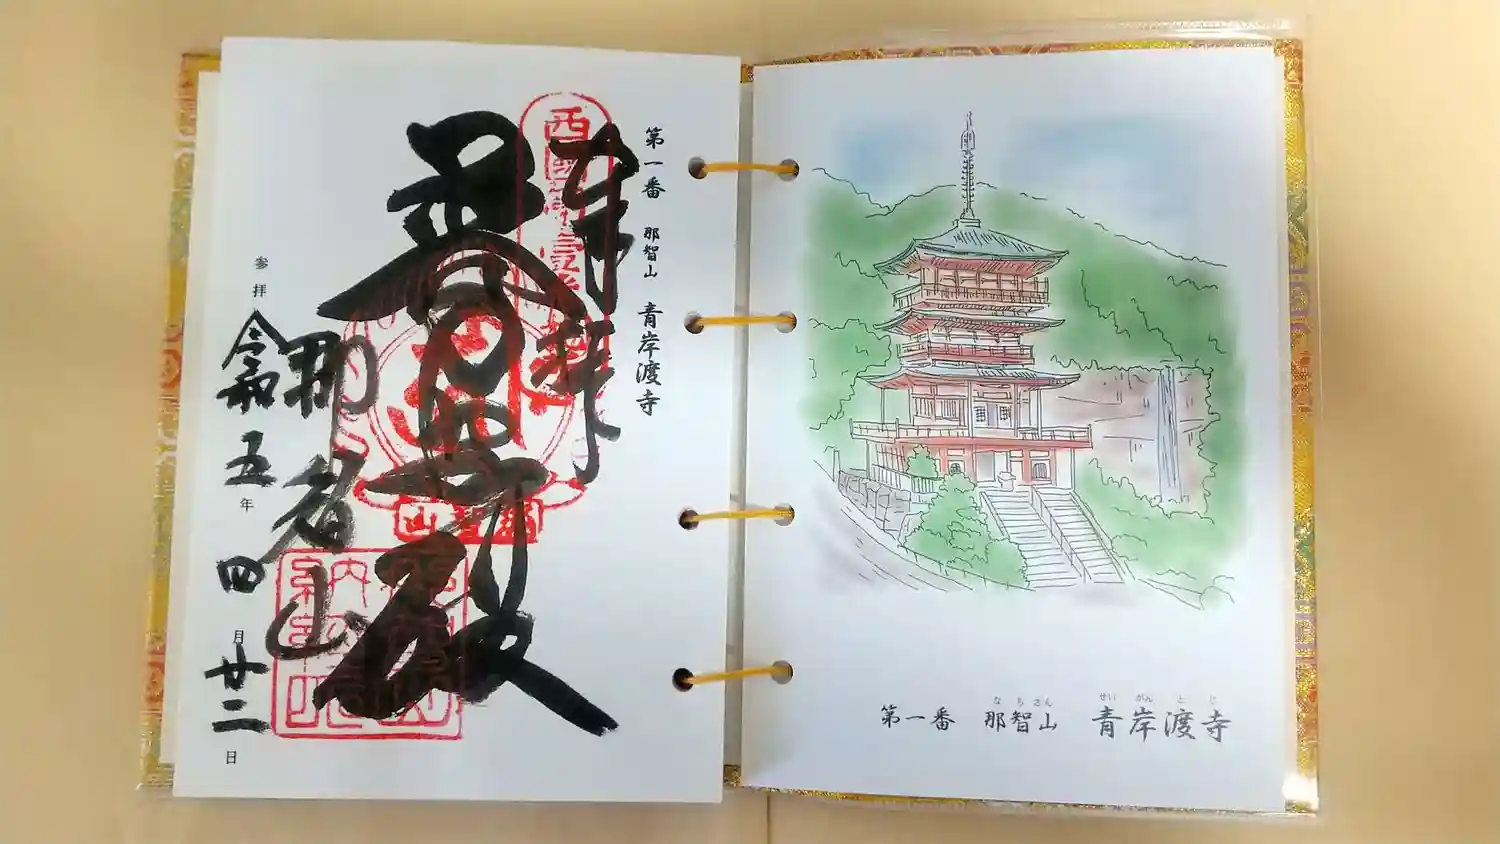 第一番 那智山 青岸渡寺
奉拝
普照殿
那智山
参拝 令和五年 四月廿二日
西国第一番
なちさん せいがんとじ
第一番 那智山 青岸渡寺